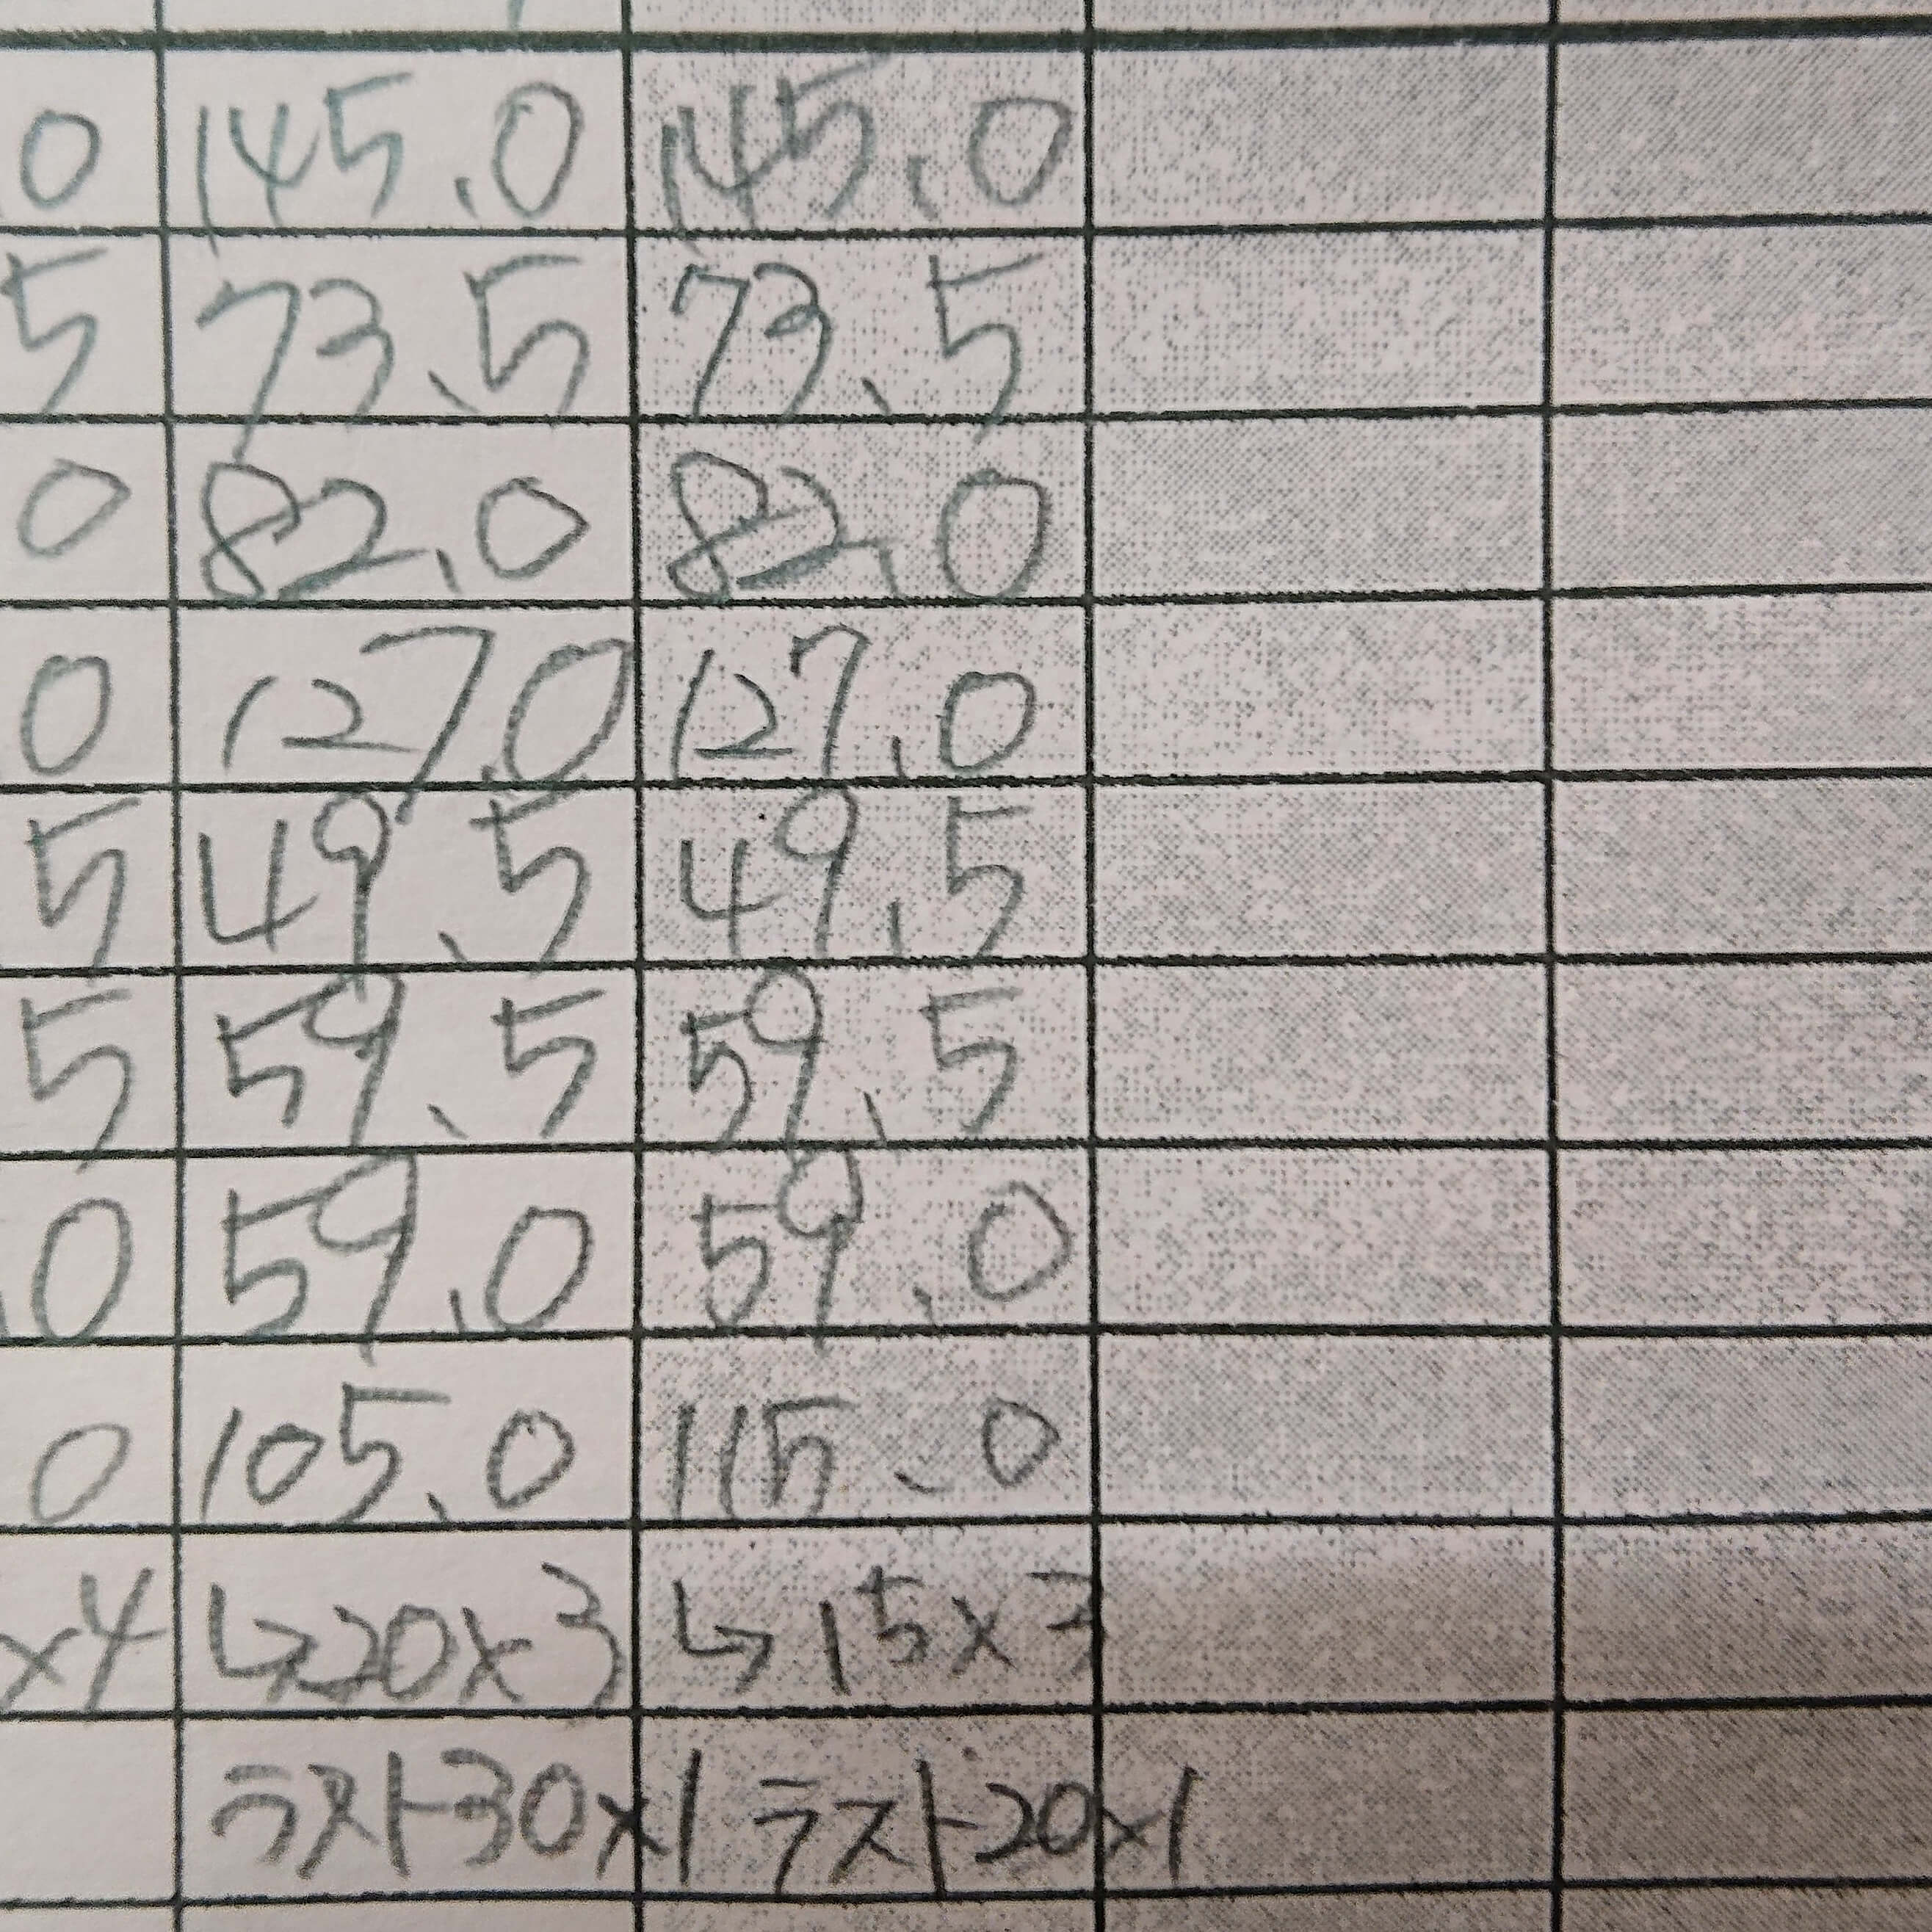 .0 145.0 145.0
5 73.5 73.5
0 82.0 82.0
0 127.0 127.0
5 49.5 49.5
5 59.5 59.5
.0 59.0 59.0
0 105.0 115.0
×4 ↳20×3 ↳15×3
ラスト30×1 ラスト20×1